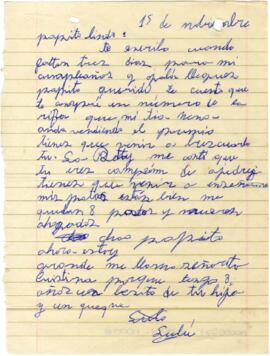 1º de noviembre
papito lindo:
te escribo cuando
faltan tres dias para mi
cumpleaños y ojalá llegues
papito querido te cuento que
te compré un número de la
rifa que mi tia nena
anda vendiendo el premio
tienes que venir a buscarlo
tu. La Betty me contó que
tu eres campeón de ajedrez
tienes que venir a enseñarme
mis patos están bien me
quedan 8 patos y murieron
ahogados
chao papito
ahora estoy
grande me llamo señorita
Cristina porque tengo 8
años un besito de tu hija
y un queque
Lulú